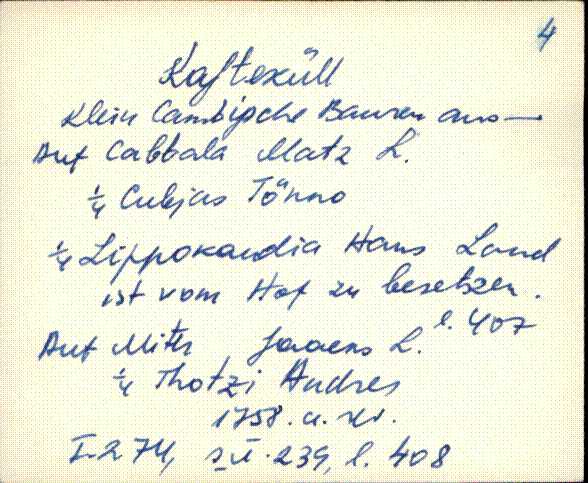 4
Kasteküll
Klein Cambische Bauren aus—
Auf Cabbala Matz L.
1/4 Cubjas Tönno
1/4 Lippokandia Hans Land
ist vom Hof zu besetzen.
l. 407
Auf Mits Jaaens L.
1/4 Thotzi Andres
1758. a. rev.
I.2.74, s. II. 239, l. 408